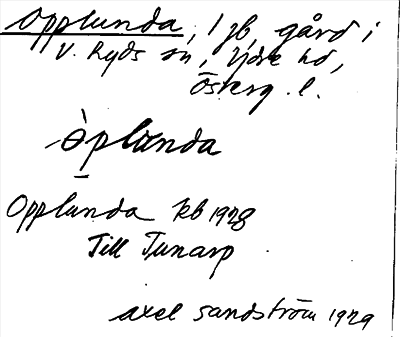 Opplunda, 1 jb, gård i
V. Ryds sn, Ydre hd,
Österg. l.
òplùnda
Opplunda kb 1928
Till Tunarp
Axel Sandström 1929